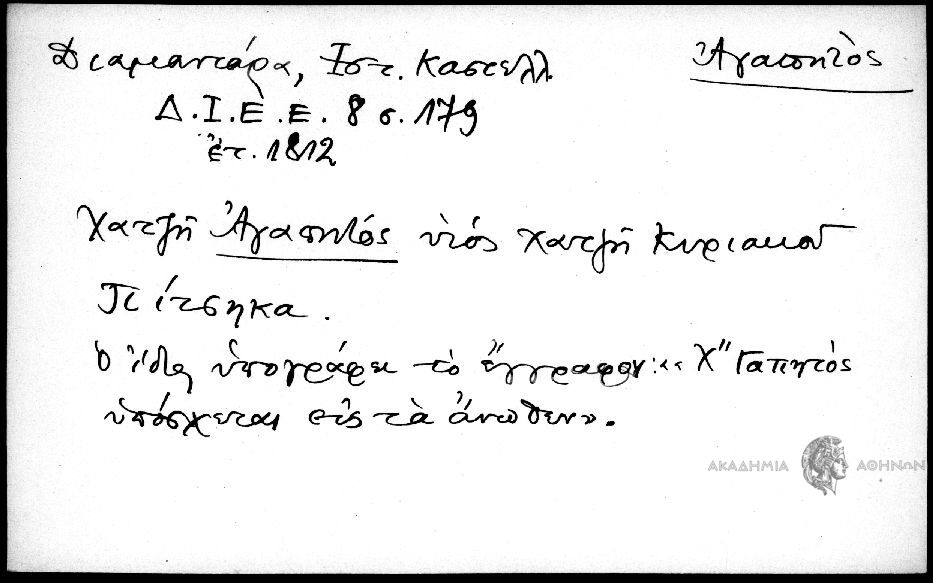 Διαμαντάρα, Ἱστ. Καστελλ
Ἀγαπητὸς
Δ.Ι.Ε.Ε. 8 σ. 179
ἔτ. 1812
Χατζῆ Ἀγαπητός υἱός χατζῆ Κυριακοῦ
Πίτσηκα.
ὁ ἴδιος ὑπογράφει τὸ ἔγγραφον: «Χ" Γαπητὸς
ὑπόσχεται εἰς τὰ ἄνωθεν».
ΑΚΑΔΗΜΙΑ ΑΘΗΝΩΝ